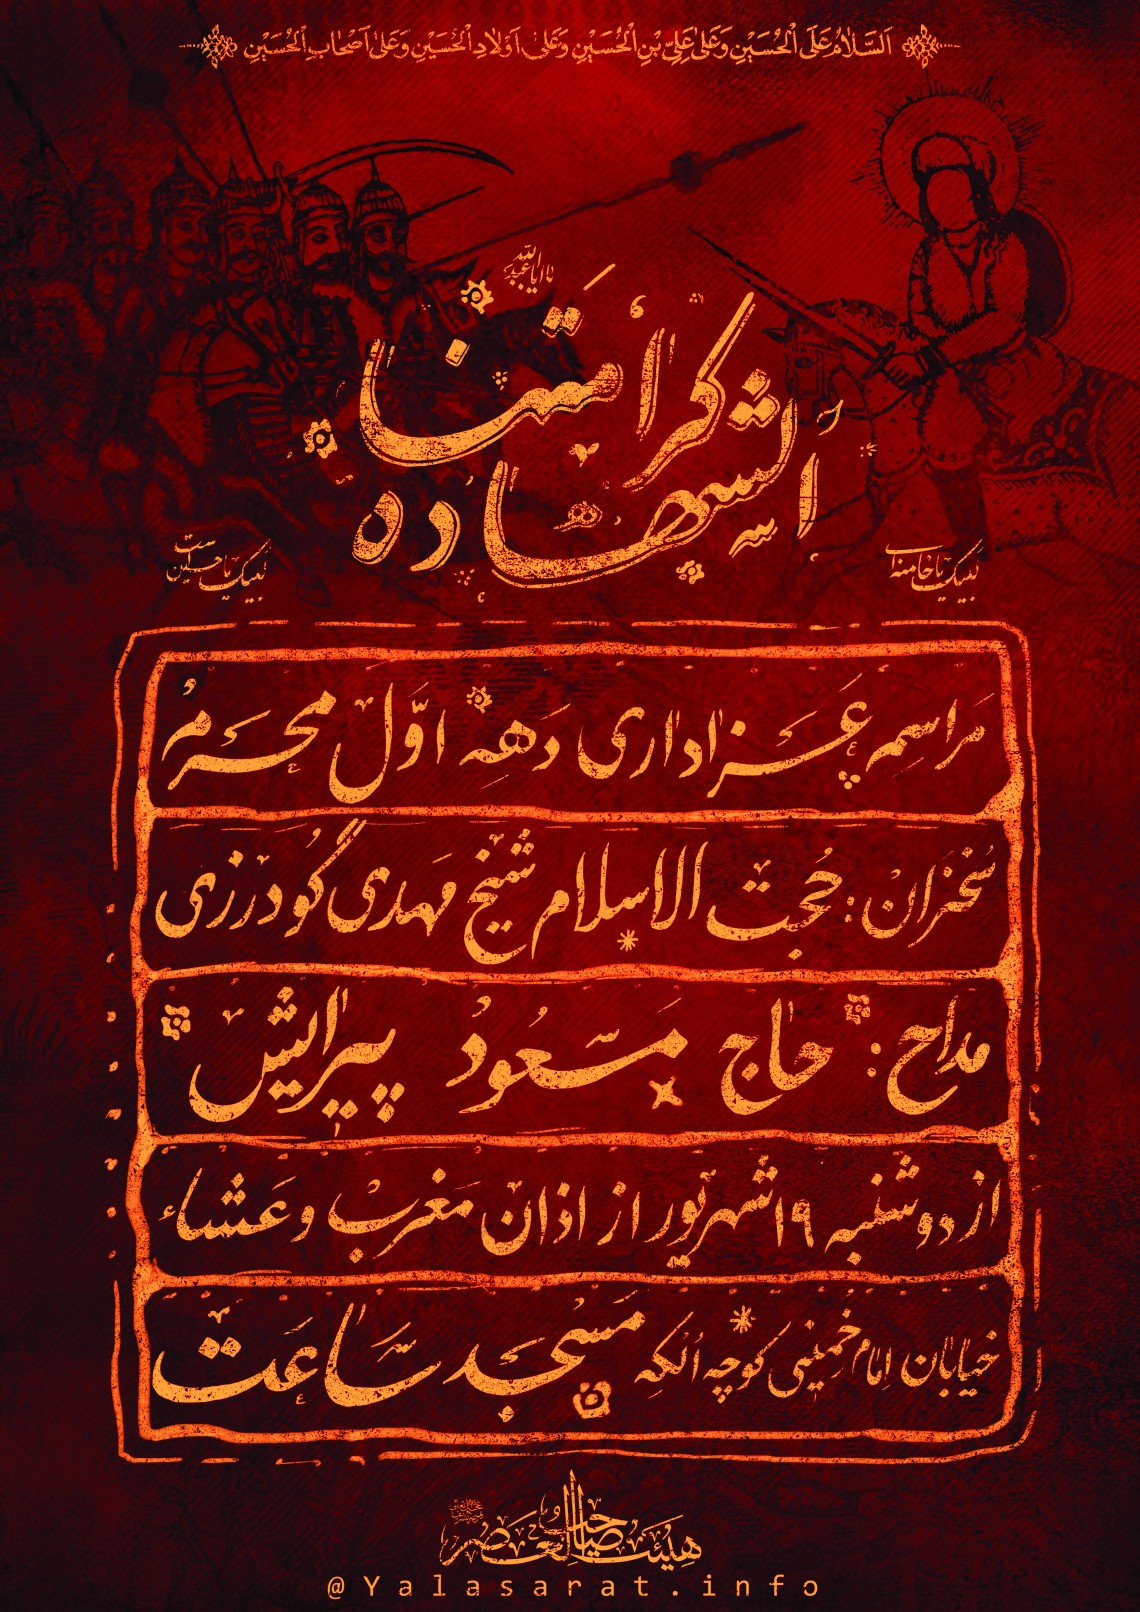 اَلسَّلامُ عَلَی الْحُسَیْنِ وَ عَلیٰ عَلِیِّ بْنِ الْحُسَیْنِ وَ عَلیٰ اَوْلادِ الْحُسَیْنِ وَ عَلیٰ اَصْحابِ الْحُسَیْنِ
یا اباعبدالله
کرامتنا
الشهاده
لبیک یا خامنه ای
لبیک یا حسین
مراسم عزاداری دهه اوّل محرم
سخنران : حجت الاسلام شیخ مهدی گودرزی
مداح : حاج مسعود پیرایش
از دوشنبه ۱۹ شهریور از اذان مغرب و عشاء
خیابان امام خمینی کوچه الکه مسجد ساعت
هیئت صاحب العصر
@Yalasarat.info